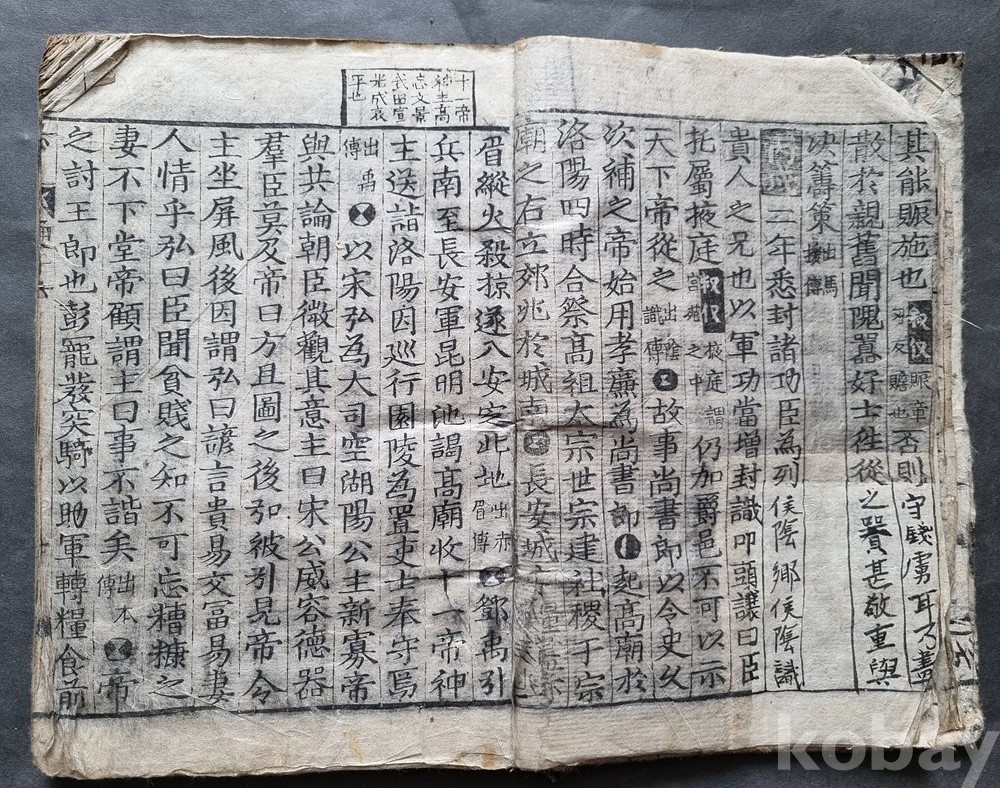 其能賑施也 叙仪 賑 贍也 否則守錢虜耳乃盡
散於親舊聞隗囂好士往從之囂甚敬重與
决籌策 出馬援傳
二年悉封諸功臣為列侯陰鄉侯陰識
貴人之兄也以軍功當增封識叩頭讓曰臣
托屬掖庭 叙仪 掖庭謂宮 之中 仍加爵邑不可以示
天下帝從之 出陰識傳 故事尚書郎以令史久
次補之帝始用孝廉為尚書郎 起高廟於
洛陽四時合祭高祖太宗世宗建社稷于宗
廟之右立郊兆於城南 長安城
眉縱火殺掠遂入安定北地 出赤眉傳 鄧禹引
兵南至長安軍昆明池謁高廟收十一帝神
主送詣洛陽因巡行園陵為置吏士奉守焉
出禹傳 以宋弘為大司空湖陽公主新寡帝
與共論朝臣微觀其意主曰宋公威容德器
羣臣莫及帝曰方且圖之後弘被引見帝令
主坐屏風後因謂弘曰諺言貴易交富易妻
人情乎弘曰臣聞貧賤之知不可忘糟糠之
妻不下堂帝顧謂主曰事不諧矣 出本傳 帝
之討王郎也彭寵發突騎以助軍轉糧食前
十一帝
神主高
忘文景
武田宣
光成哀
平也
kobay